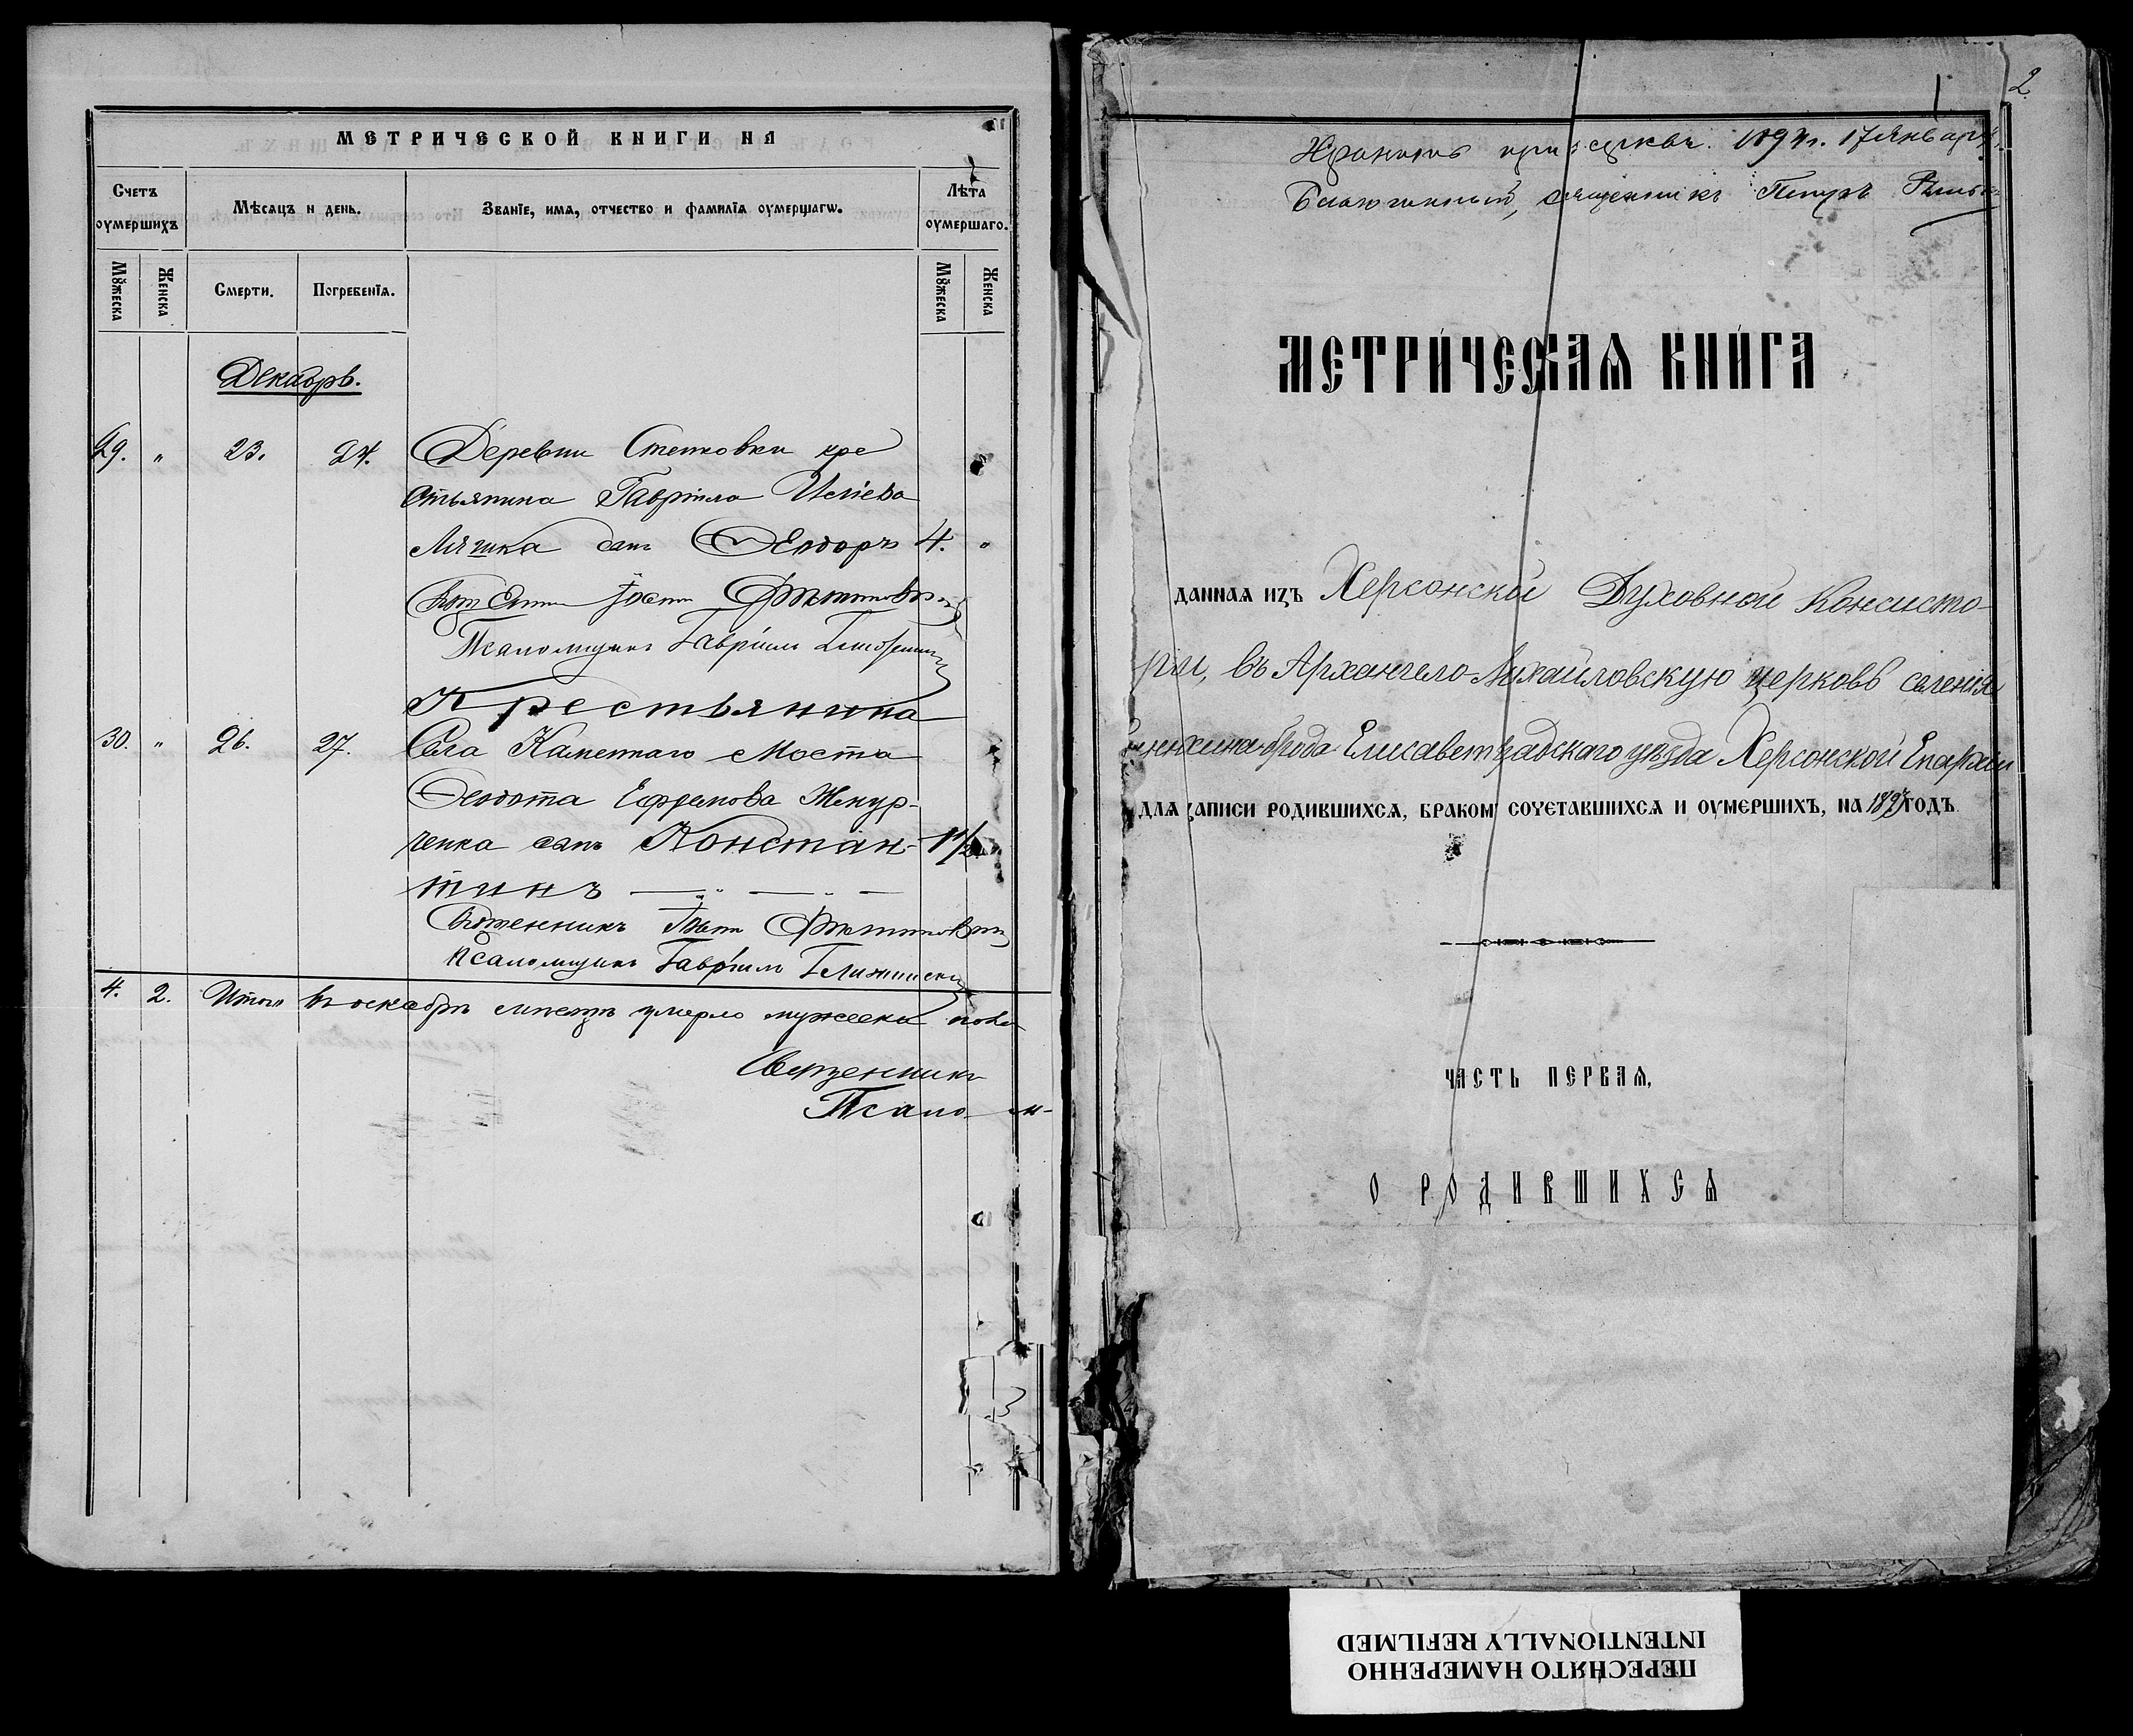 МЕТРИЧЕСКОЙ КНИГИ НА
Счетъ оумершихъ
Мѣсяцъ и день.
Званїе, имя, отчество и фамилїя оумершагѡ.
Лѣта оумершаго.
Мꙋжеска
Женска
Смерти.
Погребенїя.
Мꙋжеска
Женска
Декабрь.
29. " 23. 24. Деревни Степовки кре
стьянина Гаврiила Илiева
сынъ Ѳеодоръ 4. "
Псаломщикъ Гаврiилъ
Крестьянина
30. " 26. 27. Села Каменнаго Моста
Ѳеодота Ефремова Жекур-
ченка сынъ Констан-
тинъ
Священникъ
Псаломщикъ Гаврiилъ
4. 2. Итого въ декабрѣ мѣсяцѣ умерло мужеска пола
Священникъ
Псалом-
2
Хранить при церкви. 17 Января
Благочинный, священникъ Петръ
МЕТРИ́ЧЕСКАЯ КНИ́ГА
ДАННАЯ ИЗЪ Херсонской Духовной Консисто-
рiи, въ Архангело-Михайловскую церковь селенiя
брода Елисаветградскаго уѣзда Херсонской Епархiи
ДЛЯ ЗАПИСИ РОДИВШИХСЯ, БРАКОМ СОЧЕТАВШИХСЯ И ОУМЕРШИХЪ, НА 1897 ГОДЪ
ЧАСТЬ ПЕРВАЯ,
О РОДИВШИХСЯ
ПЕРЕСНЯТО НАМЕРЕННО
INTENTIONALLY REFILMED